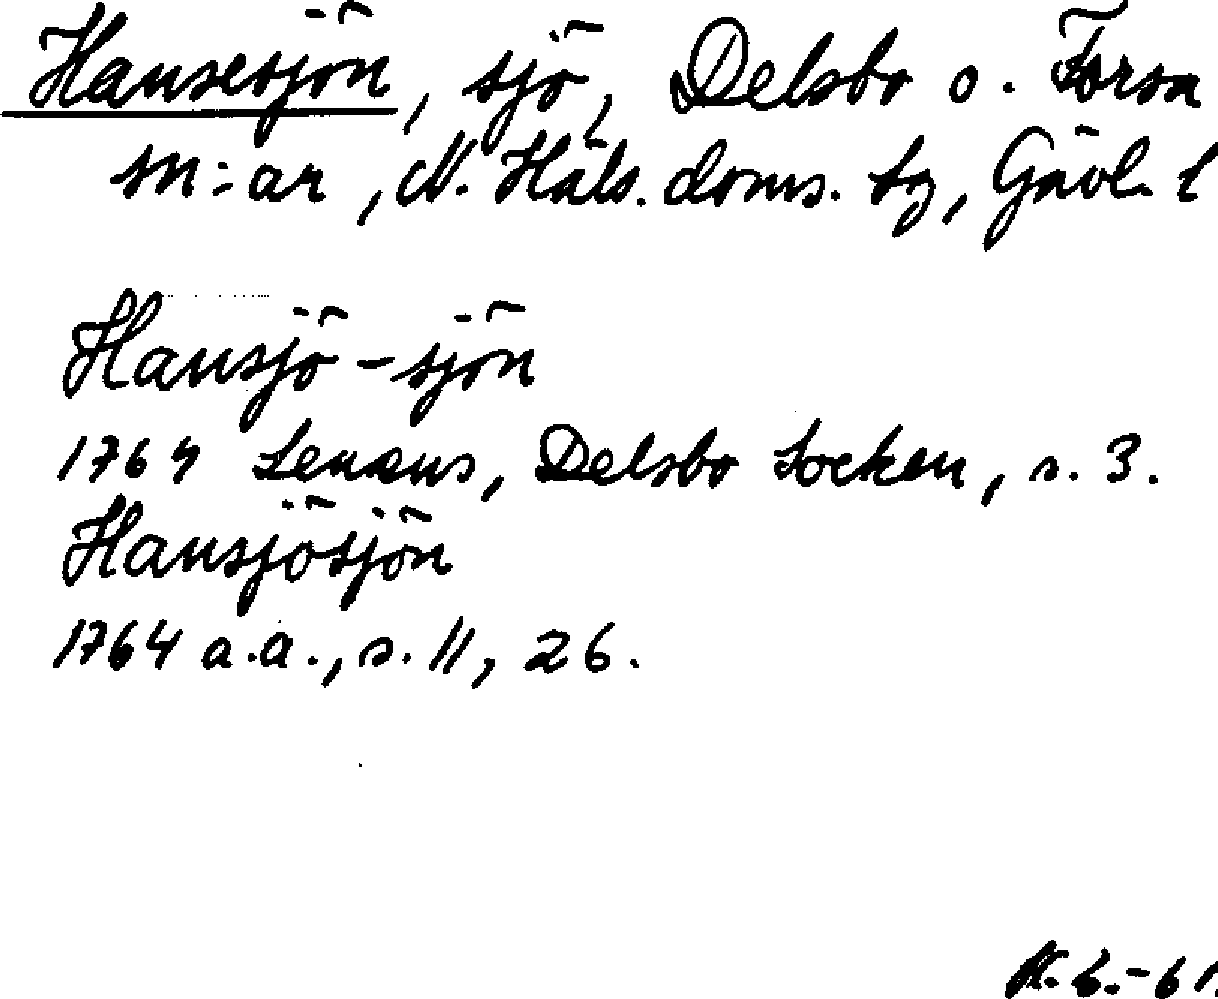 Hansesjön, sjö, Delsbo o. Forsa
sn:ar, N. Häls. doms. tg, Gävl. l
Hansjö-sjön
1764 Lenæus, Delsbo Socken, s. 3.
Hansjösjön
1764 a.a., s. 11, 26.
K. L. -61.